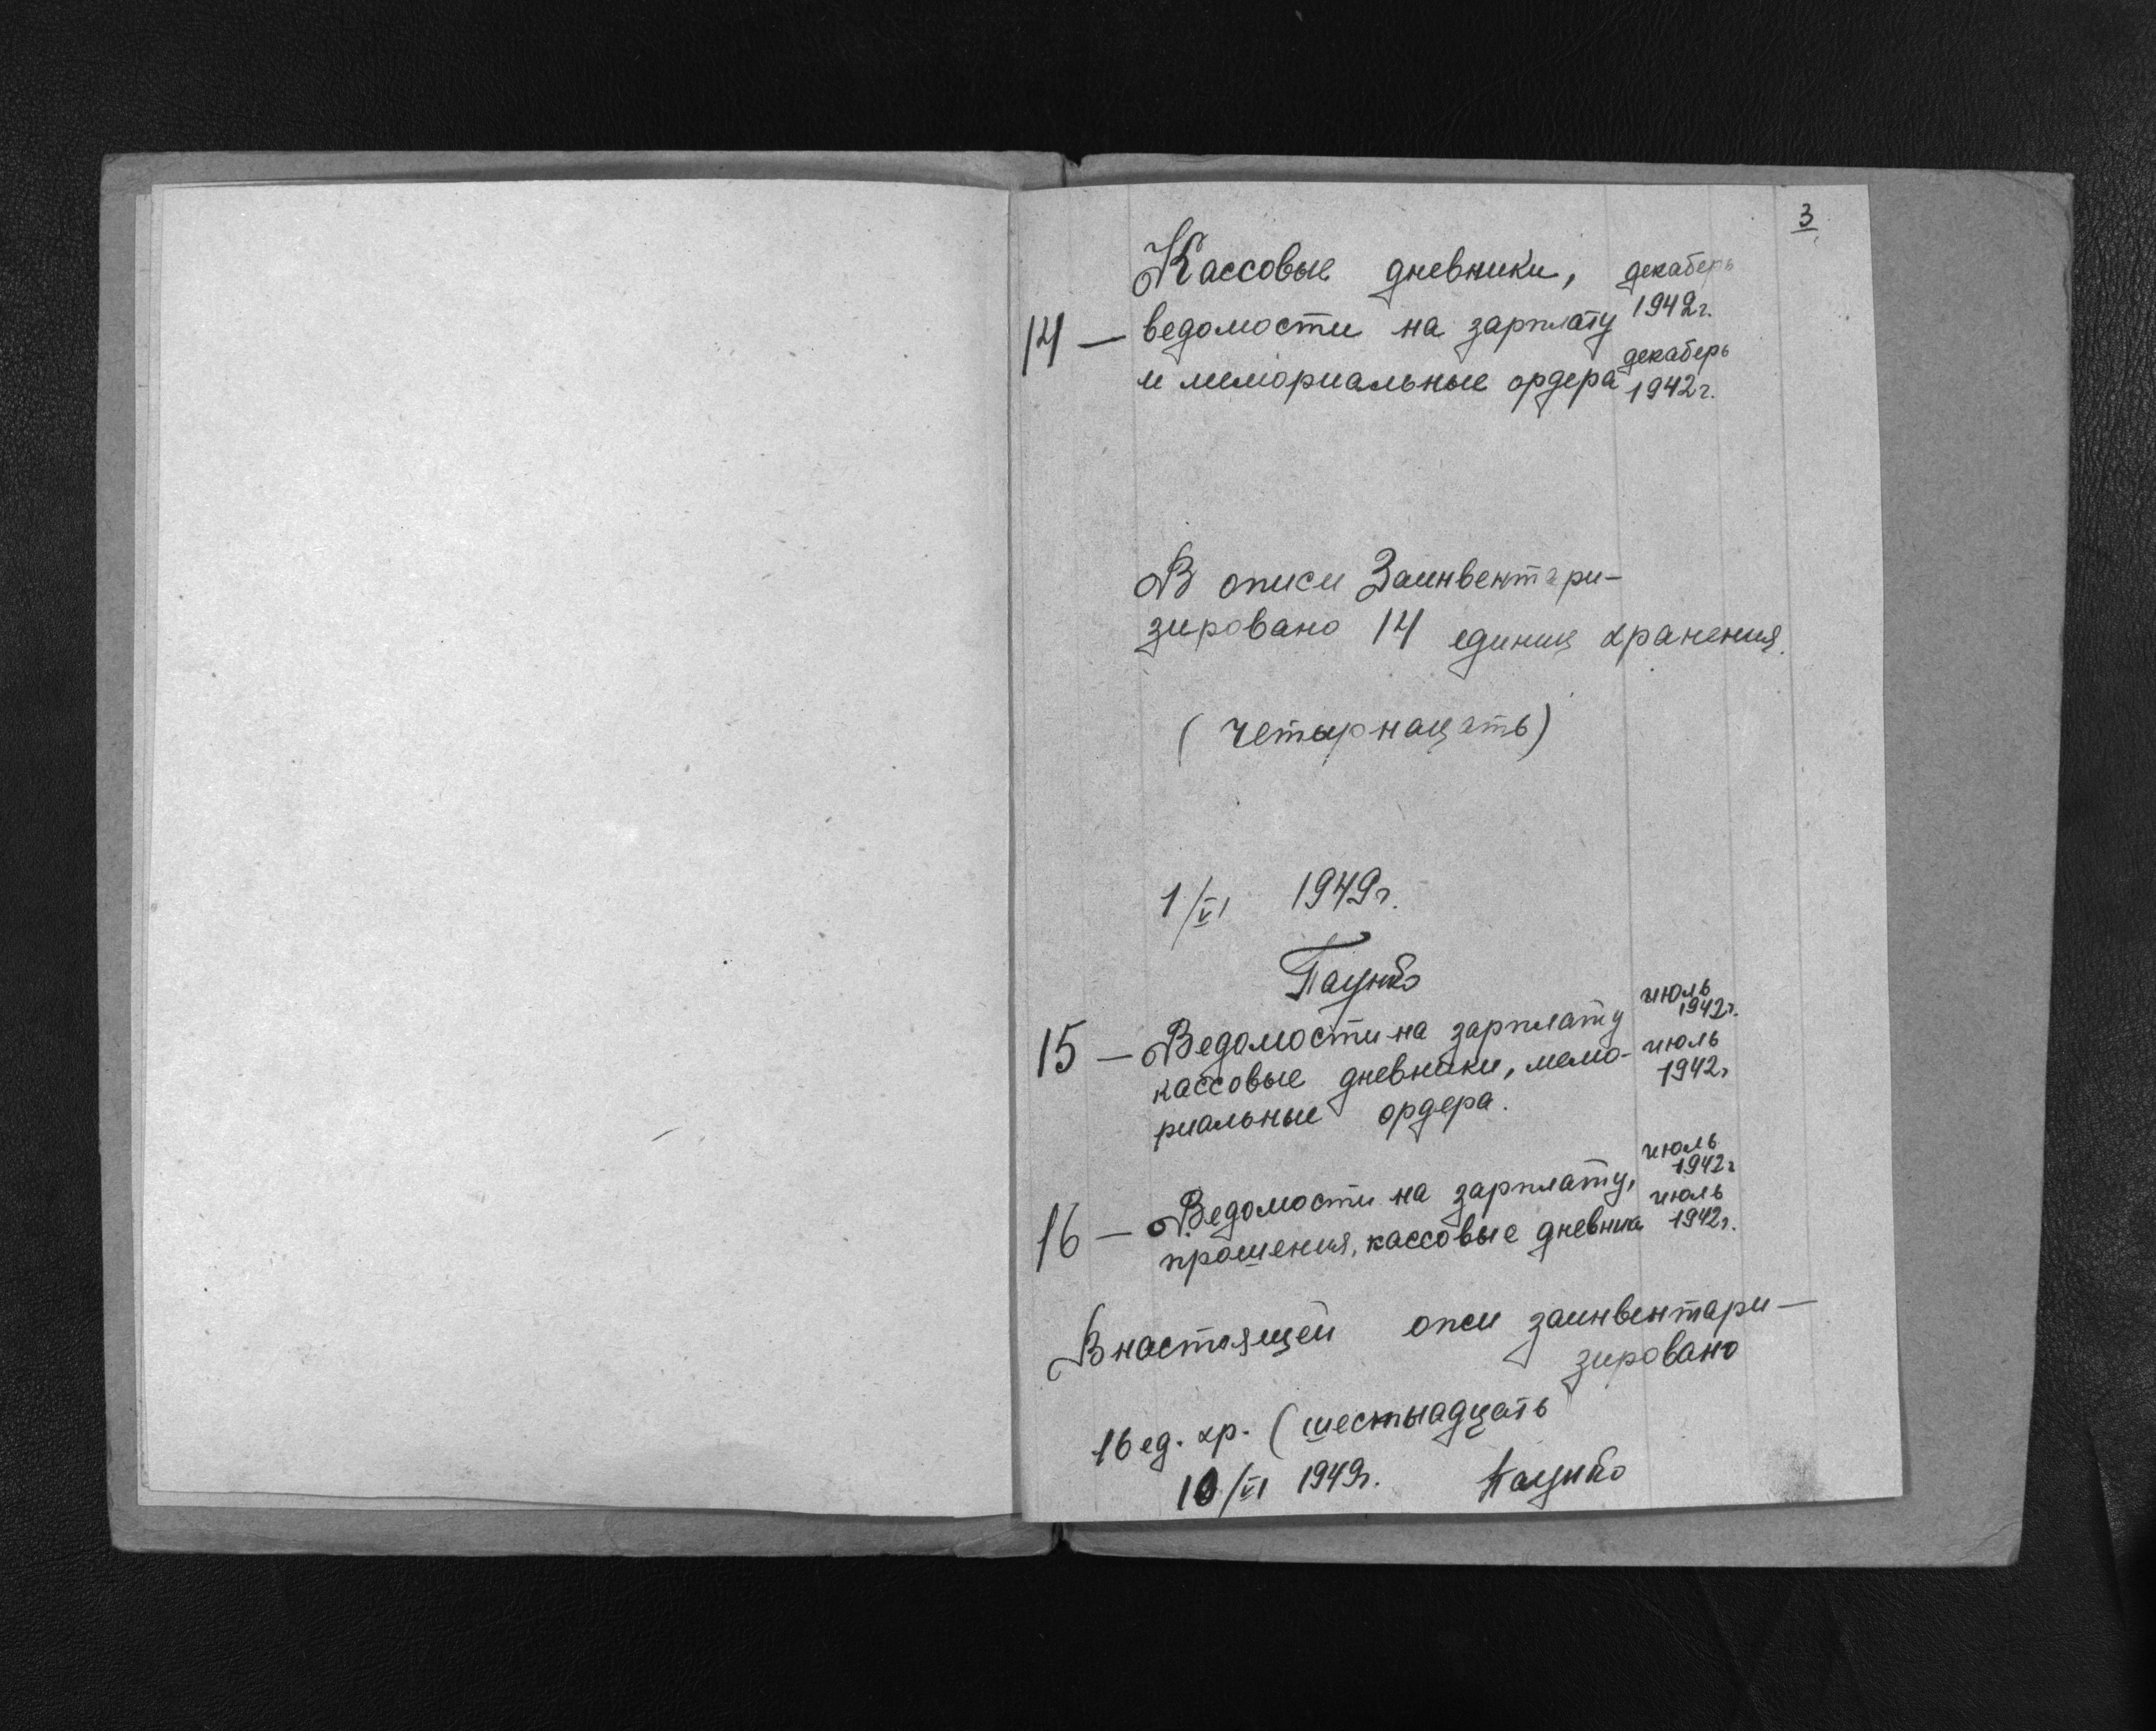 3
Кассовые дневники, декабрь
1942г.
14 — ведомости на зарплату
декабрь
и мемориальные ордера 1942г.
В описи Заинвентари-
зировано 14 единиц хранения.
(четырнацать)
1/VI 1949г.
июль
1942г.
15 — Ведомости на зарплату
июль
кассовые дневники, мемо- 1942г
риальные ордера.
июль
1942г
16 — Ведомости на зарплату, июль
прошения, кассовые дневник 1942г.
В настоящей опси заинвентари-
зировано
16 ед. хр. (шестьнадцать
10/VI 1949г.